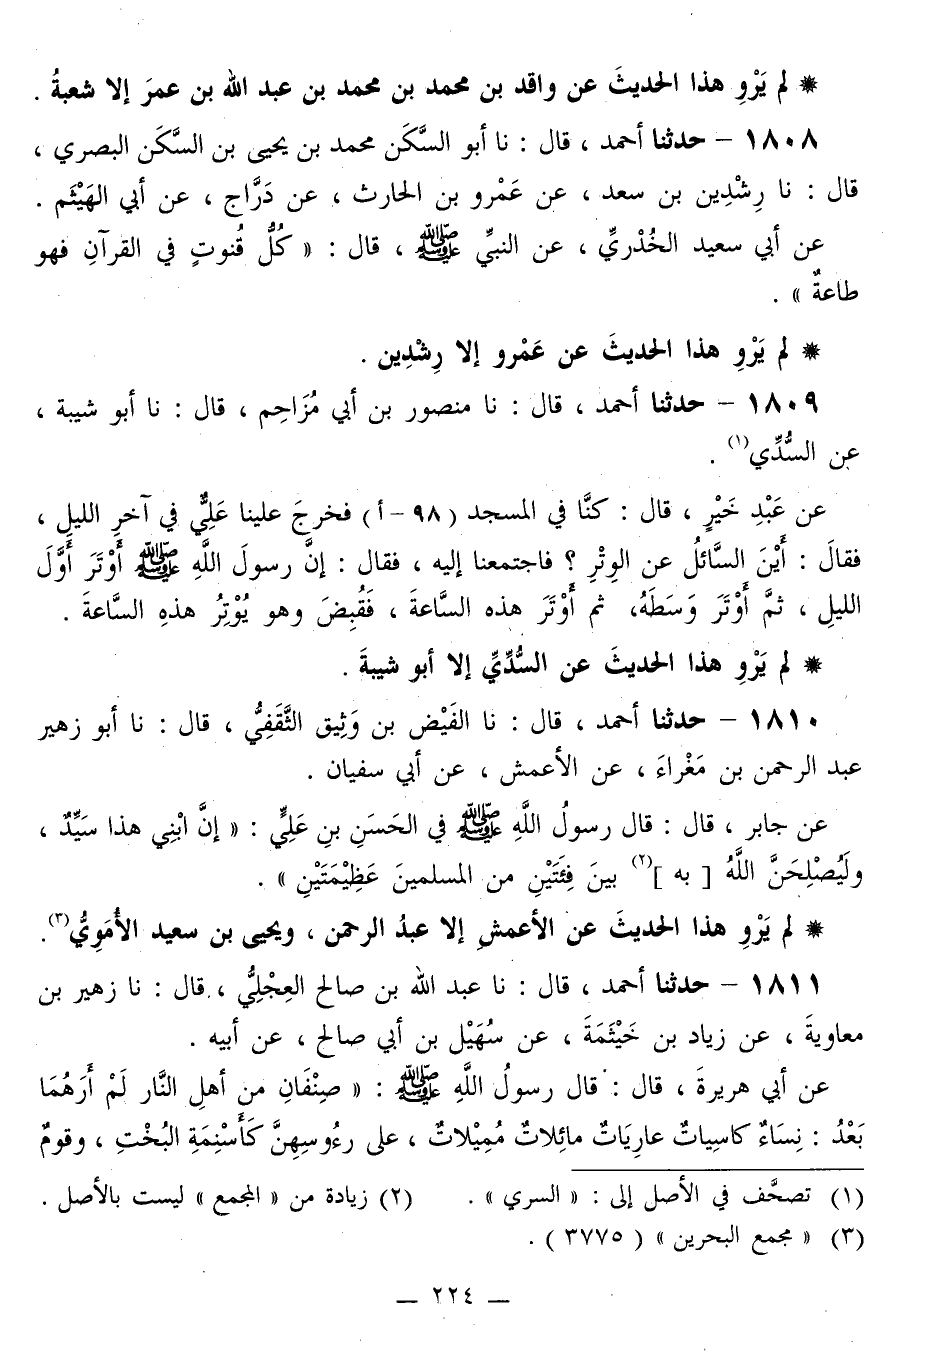 * لم يَرْوِ هذا الحديثَ عن واقد بن محمد بن محمد بن عبد الله بن عمرَ إلا شعبةُ .
١٨٠٨ - حدثنا أحمد ، قال : نا أبو السَّكَن محمد بن يحيى بن السَّكَن البصري ،
قال : نا رِشْدِين بن سعد ، عن عَمْرو بن الحارث ، عن دَرَّاج ، عن أبي الهَيْثَم .
عن أبي سعيد الخُدْريِّ ، عن النبيِّ ﷺ ، قال : « كُلُّ قُنوتٍ في القرآنِ فهو
طاعةٌ » .
* لم يَرْوِ هذا الحديثَ عن عَمْرو إلا رِشْدِين .
١٨٠٩ - حدثنا أحمد ، قال : نا منصور بن أبي مُزَاحِم ، قال : نا أبو شيبة ،
عن السُّدِّي(١) .
عن عَبْدِ خَيْرٍ ، قال : كنَّا في المسجد (٩٨-أ) فخرجَ علينا عَلِيٌّ في آخرِ الليلِ ،
فقالَ : أَيْنَ السَّائلُ عن الوِتْرِ ؟ فاجتمعنا إليه ، فقال : إنَّ رسولَ اللَّهِ ﷺ أَوْتَرَ أَوَّلَ
الليلِ ، ثمَّ أَوْتَرَ وَسَطَهُ، ثم أَوْتَرَ هذه السَّاعةَ ، فَقُبِضَ وهو يُوْتِرُ هذهِ السَّاعةَ .
* لم يَرْوِ هذا الحديثَ عن السُّدِّيِّ إلا أبو شيبةَ .
١٨١٠ - حدثنا أحمد ، قال : نا الفَيْض بن وَثِيق الثَّقَفِيُّ ، قال : نا أبو زهير
عبد الرحمن بن مَغْراءَ ، عن الأعمش ، عن أبي سفيان .
عن جابر ، قال : قال رسولُ اللَّهِ ﷺ في الحَسَنِ بنِ عَلِيٍّ : « إنَّ ابْنِي هذا سَيِّدٌ ،
ولَيُصْلِحَنَّ اللَّهُ [ به ](٢) بينَ فِئَتَيْنِ من المسلمينَ عَظِيْمَتَيْنِ » .
* لم يَرْوِ هذا الحديثَ عن الأعمشِ إلا عبدُ الرحمن ، ويحيى بن سعيد الأُمَوِيُّ(٣).
١٨١١ - حدثنا أحمد ، قال : نا عبد الله بن صالح العِجْلِيُّ ، قال : نا زهير بن
معاويةَ ، عن زياد بن خَيْثَمَةَ ، عن سُهَيْل بن أبي صالح ، عن أبيه .
عن أبي هريرةَ ، قال : قال رسولُ اللَّهِ ﷺ : « صِنْفَانِ من أهلِ النَّار لَمْ أَرَهُمَا
بَعْدُ : نِسَاءٌ كاسِياتٌ عارِيَاتٌ مائِلاتٌ مُمِيْلاتٌ ، على رءُوسِهِنَّ كَأَسْنِمَةِ البُخْتِ ، وقومٌ
(١) تصحَّف في الأصل إلى : « السري » . (٢) زيادة من « المجمع » ليست بالأصل .
(٣) « مجمع البحرين » ( ٣٧٧٥ ) .
— ٢٢٤ —